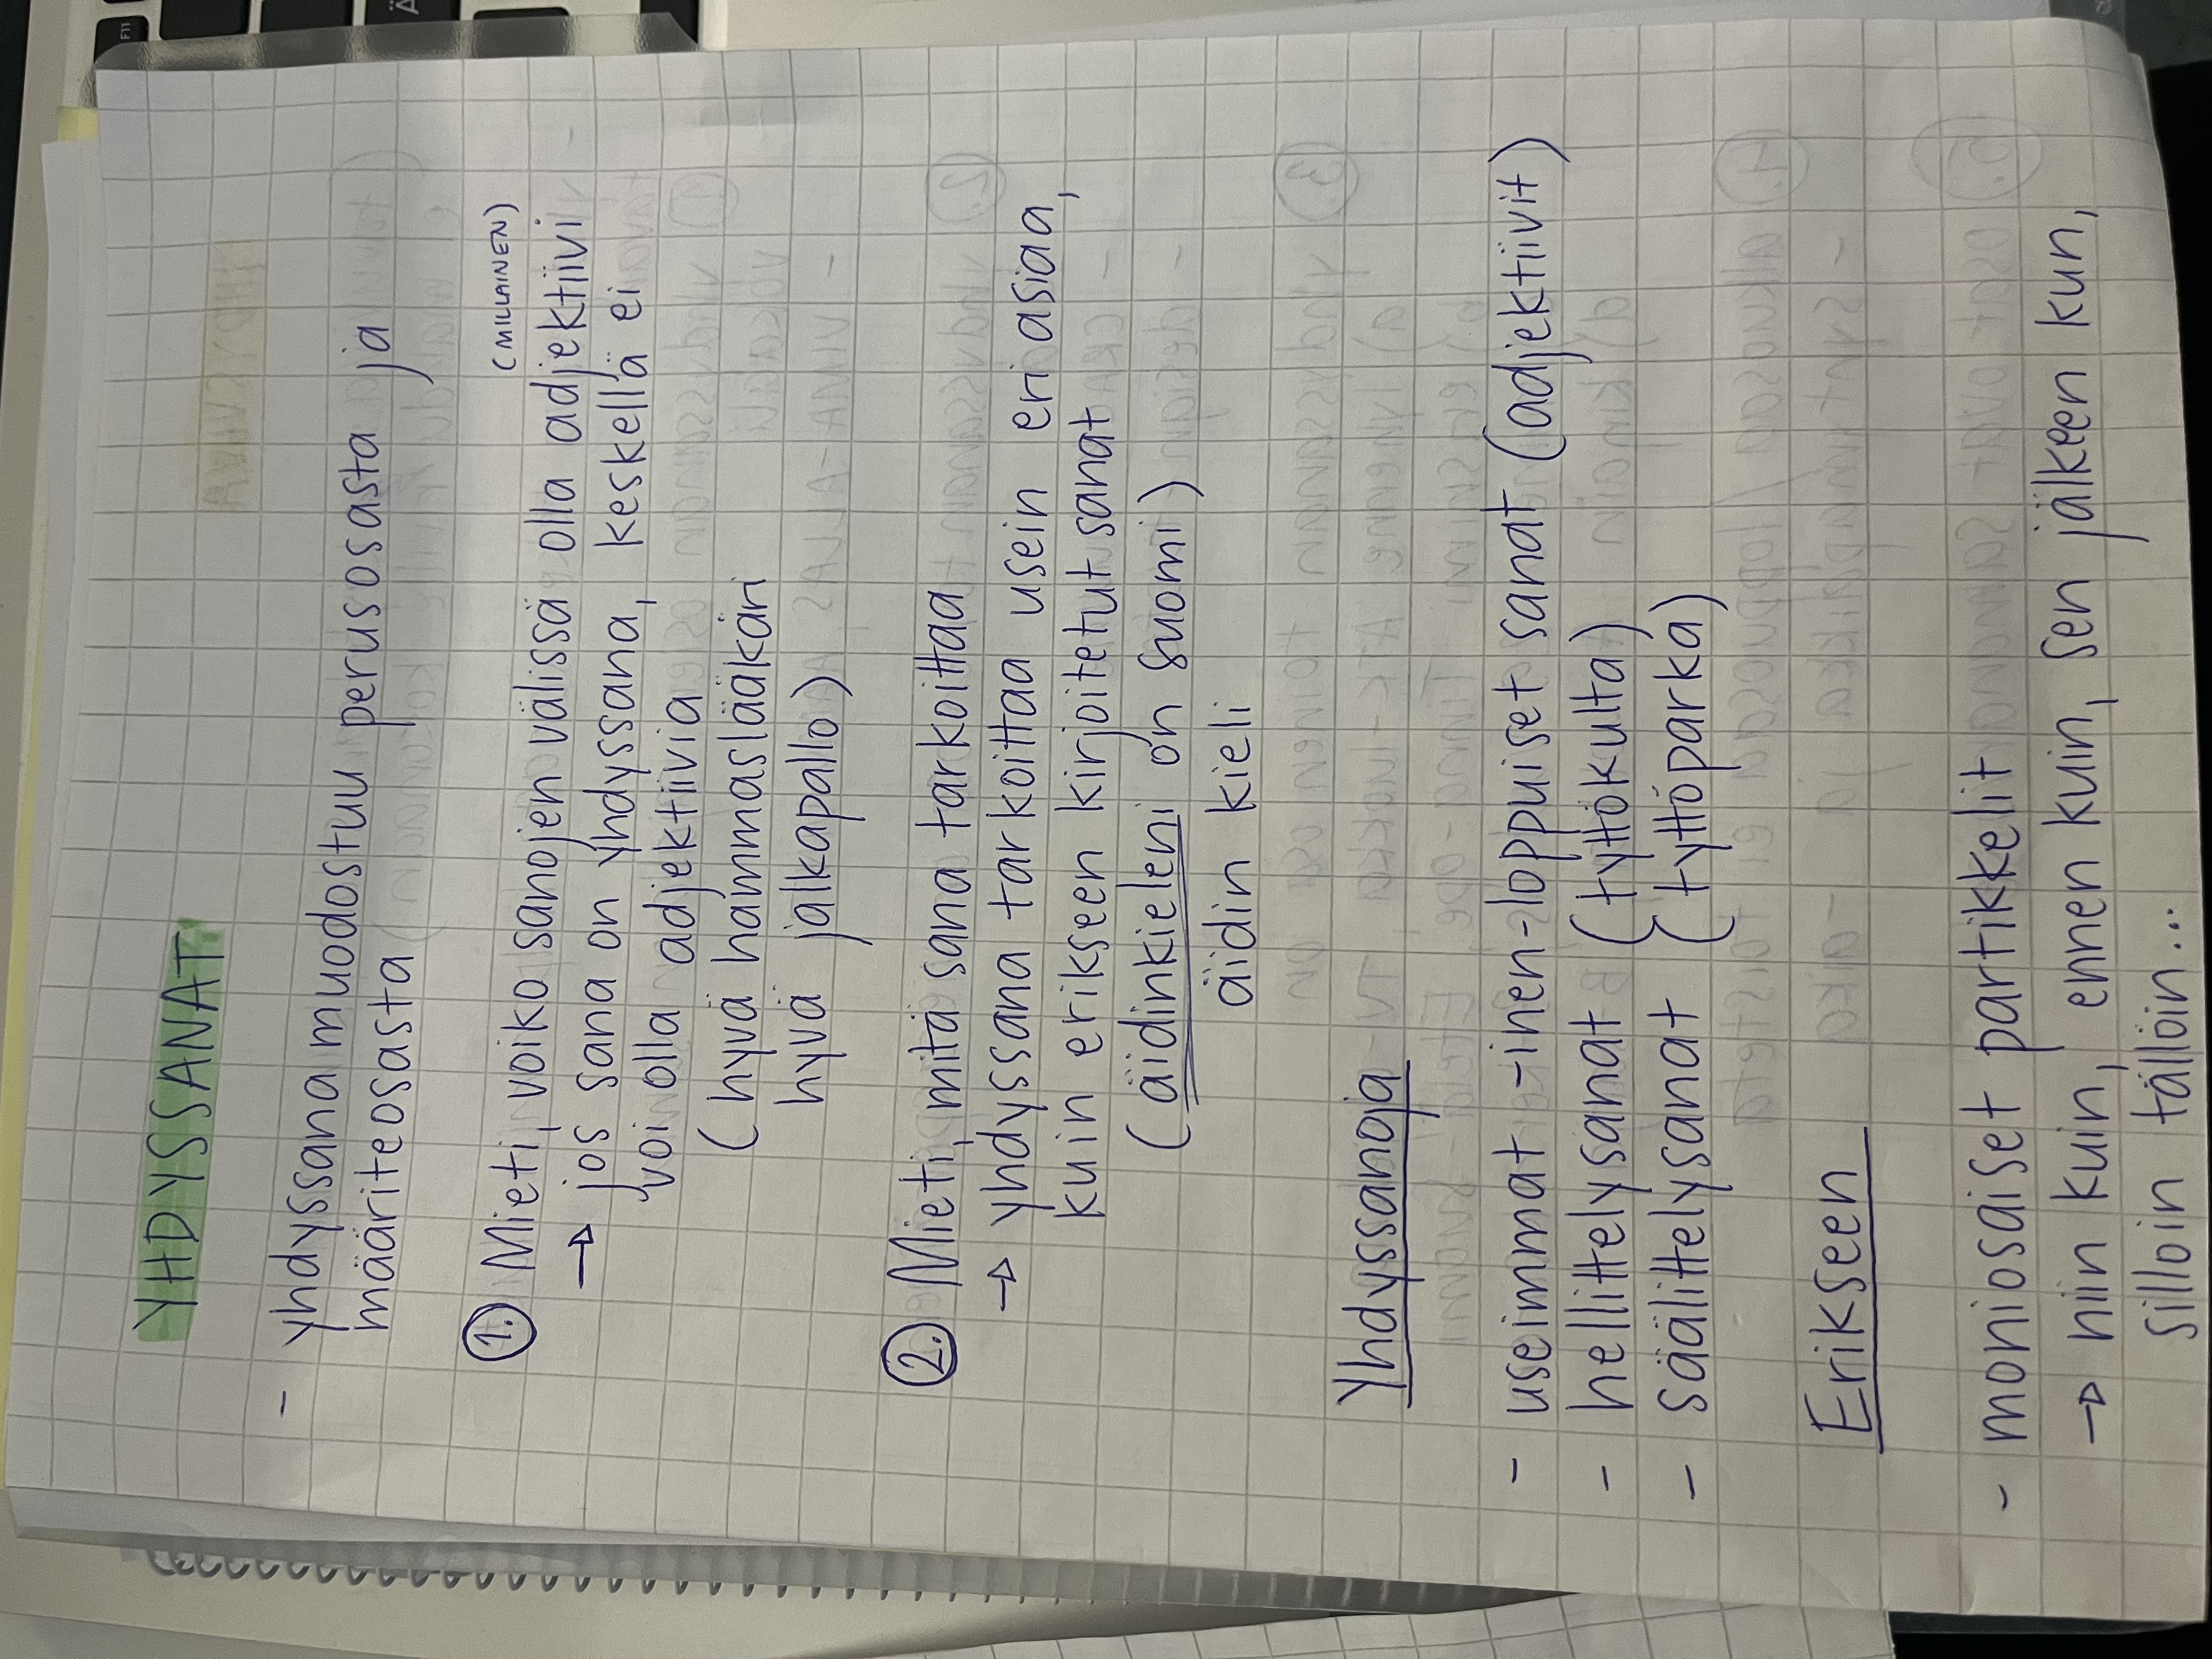 YHDYSSANAT
- yhdyssana muodostuu perusosasta ja
määriteosasta
(MILLAINEN)
1. Mieti, voiko sanojen välissä olla adjektiivi
→ jos sana on yhdyssana, keskellä ei
voi olla adjektiivia
(hyvä hammaslääkäri
hyvä jalkapallo)
2. Mieti, mitä sana tarkoittaa
→ yhdyssana tarkoittaa usein eri asiaa,
kuin erikseen kirjoitetut sanat
(äidinkieleni on suomi)
äidin kieli
Yhdyssanoja
- useimmat -inen-loppuiset sanat (adjektiivit)
- hellittelysanat (tyttökulta)
- säälittelysanat (tyttöparka)
Erikseen
- moniosaiset partikkelit
→ niin kuin, ennen kuin, sen jälkeen kun,
silloin tällöin...